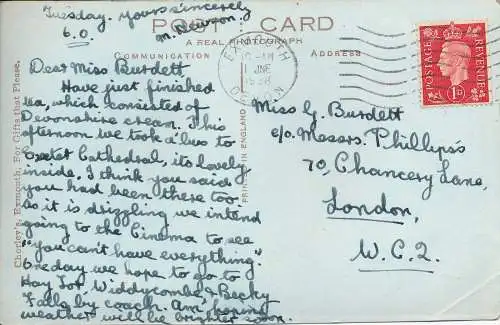 Tuesday. Yours sincerely
6.0. M. Newson.
POST CARD
A REAL PHOTOGRAPH
COMMUNICATION
ADDRESS
EXMOUTH
JNE
DEVON
POSTAGE
REVENUE
1D
Dear Miss Burdett
Have just finished
tea, which consisted of
Devonshire cream. This
afternoon we took a 'bus to
Cathedral, its lovely
inside. I think you said
you had been there too
as it is drizzling we intend
going to the Cinema to see
"you can't have everything."
One day we hope to go to
Hay Tor Widdycombe & Becky
Falls by coach. Am hoping
weather will be brighter soon.
Miss G. Burdett
c/o. Messrs. Phillips's
70, Chancery Lane,
London,
W.C.2.
Chorley's, Exmouth, For Gifts that Please.
PRINTED IN ENGLAND